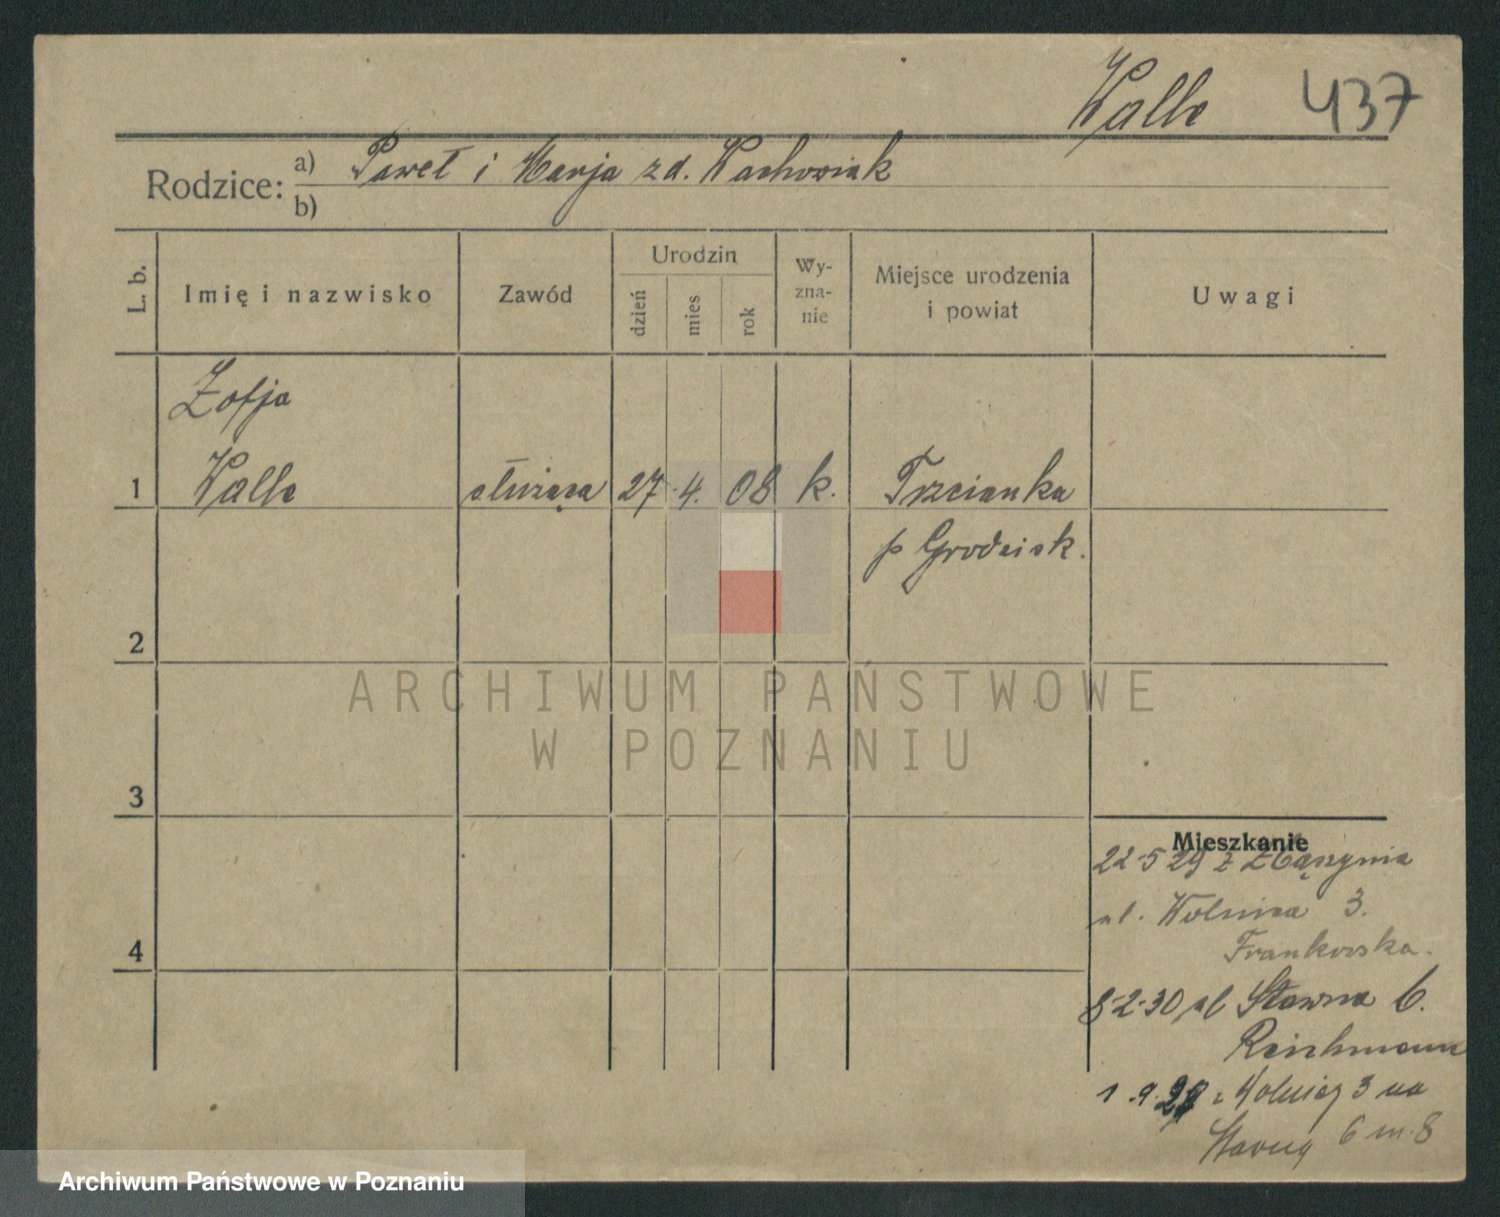 Walle 437
Rodzice: a) Paweł i Marja z d. Wachowiak
b)
L. b.
Imię i nazwisko
Zawód
Urodzin
dzień
mies
rok
Wy-
zna-
nie
Miejsce urodzenia
i powiat
Uwagi
Zofja
1 Walle służąca 27 4. 08 k. Trzcianka
p Grodzisk.
2
ARCHIWUM PAŃSTWOWE
W POZNANIU
3
Mieszkanie
22-5 29 z Zbąszynia
ul. Wolnica 3.
Frankowska.
4
8-2-30 ul Stawna 6.
Reichmann
1.9. z Wolnicy 3 na
6 m. 8
Archiwum Państwowe w Poznaniu